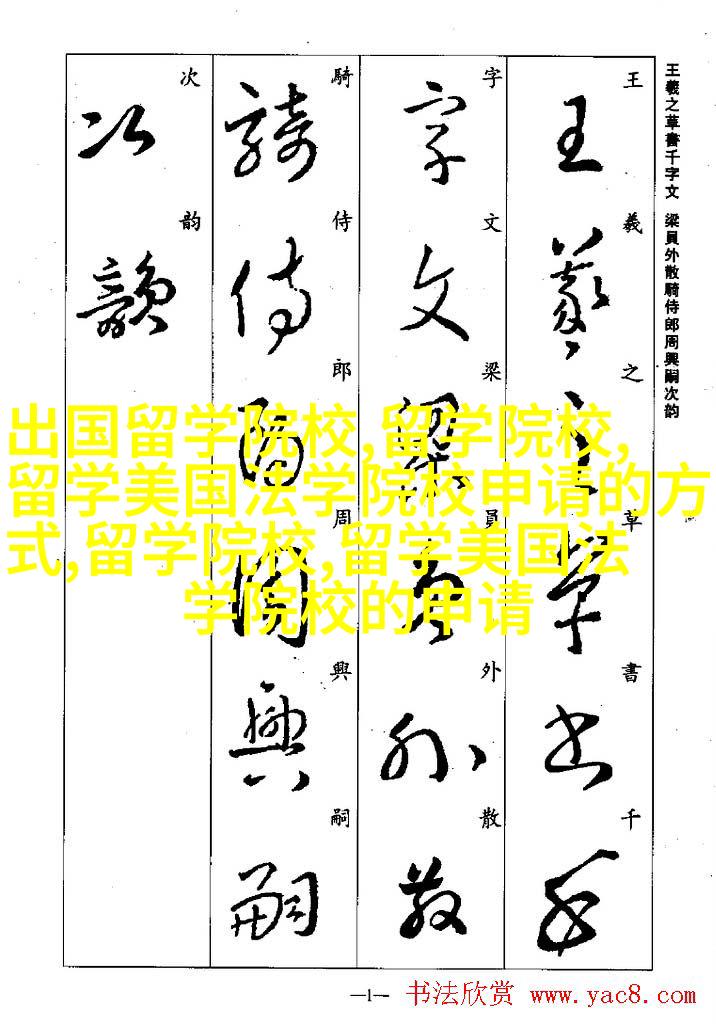 王羲之草書千字文 梁員外散騎侍郎周興嗣次韵
王羲之草書千
王羲之草書千
字文梁員外散
字文梁員外散
騎侍郎周興嗣
騎侍郎周興嗣
次韵
次韻
出国留学院校,留学院校,
留学美国法学院校申请的方
式,留学院校,留学美国法
学院校的申请
—1— 书法欣赏 www.yac8.com